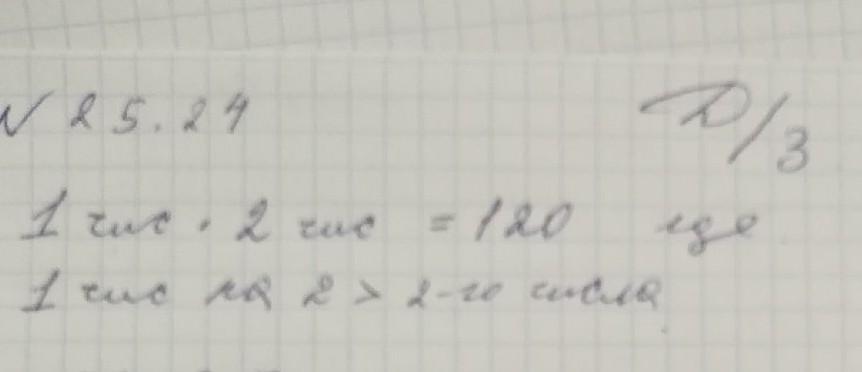 N 25.24 Д/З
1 чис · 2 чис = 120 где
1 чис на 2 > 2-го числа